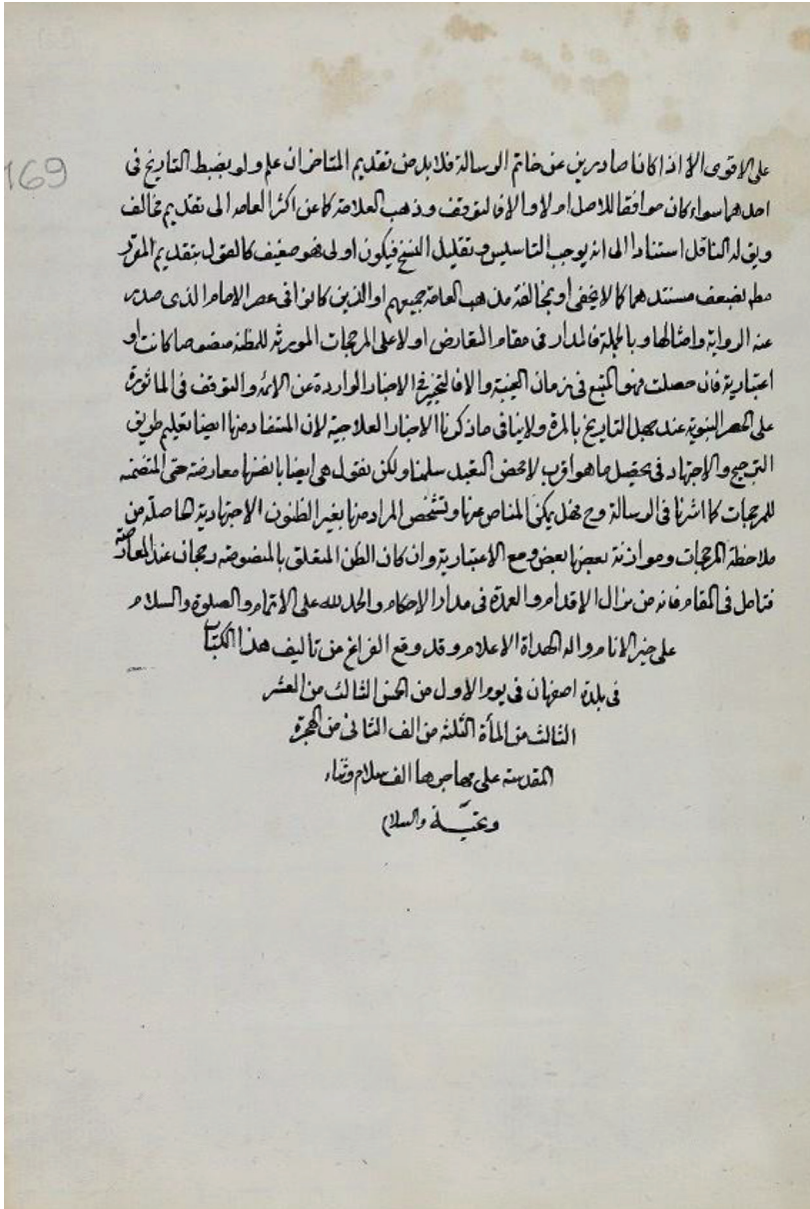 169
على الاقوى الا اذا كانا صادرين عن خاتم الرسالة فلابد من تقديم المتاخران علم ولو بضبط التاريخ فى
احدهما سواء كان موافقا للاصل اولا والا فالتوقف وذهب العلامة كما عن اكثر العامه الى تقديم مخالف
ويق له الناقل استنادا الى انه يوجب التاسيس وتقليل النسخ فيكون اولى فهو ضعيف كالقول بتقديم المقرر
مطم لضعف مستندهما كما لا يخفى او بمخالفة مذهب العامة جميعهم او الذين كانوا فى عصر الامام الذى صدر
عنه الرواية وامثالها وبالجملة فالمدار فى مقام التعارض اولا على المرجحات المورثه للمظنه منصوصا كانت او
اعتبارية فان حصلت فهو المتبع فى زمان الغيبة والا فالتخيير فى الاخبار الواردة عن الائمه والتوقف فى الماثورة
على النبوية عند جهل التاريخ بالمرة ولا ينافى ما ذكرنا الاخبار العلاجية لان المستفاد منها ايضا تعليم طريق
الترجيح والاجتهاد فى تحصيل ما هو اقرب لا محض التعبد سلمنا ولكن نقول هى ايضا بانفسها معارضة حتى المتضمنه
للمرجحات كما اشرنا فى الرسالة وح فهل يمكن المناص عنها وتشخص المراد منها بغير الظنون الاجتهادية الحاصلة من
ملاحظة المرجحات وموازنة بعضها بعض ومع الاعتبارية وان كان الظن المتعلق بالمنصوصه رجحان عند المعارضة
فتامل فى المقام فانه من مزال الاقدام والعمدة فى مدار الاحكام والحمد لله على الاتمام والصلوة والسلام
على خير الانام واله الهداة الاعلام وقد وقع الفراغ من تاليف هذا الكتاب
فى بلدة اصفهان فى يوم الاول من الخمس الثالث من العشر
الثالث من المأة الثلثه من الف الثانى من الهجرة
المقدسة على مهاجرها الف سلام وثناء
وتحيّة والسلام